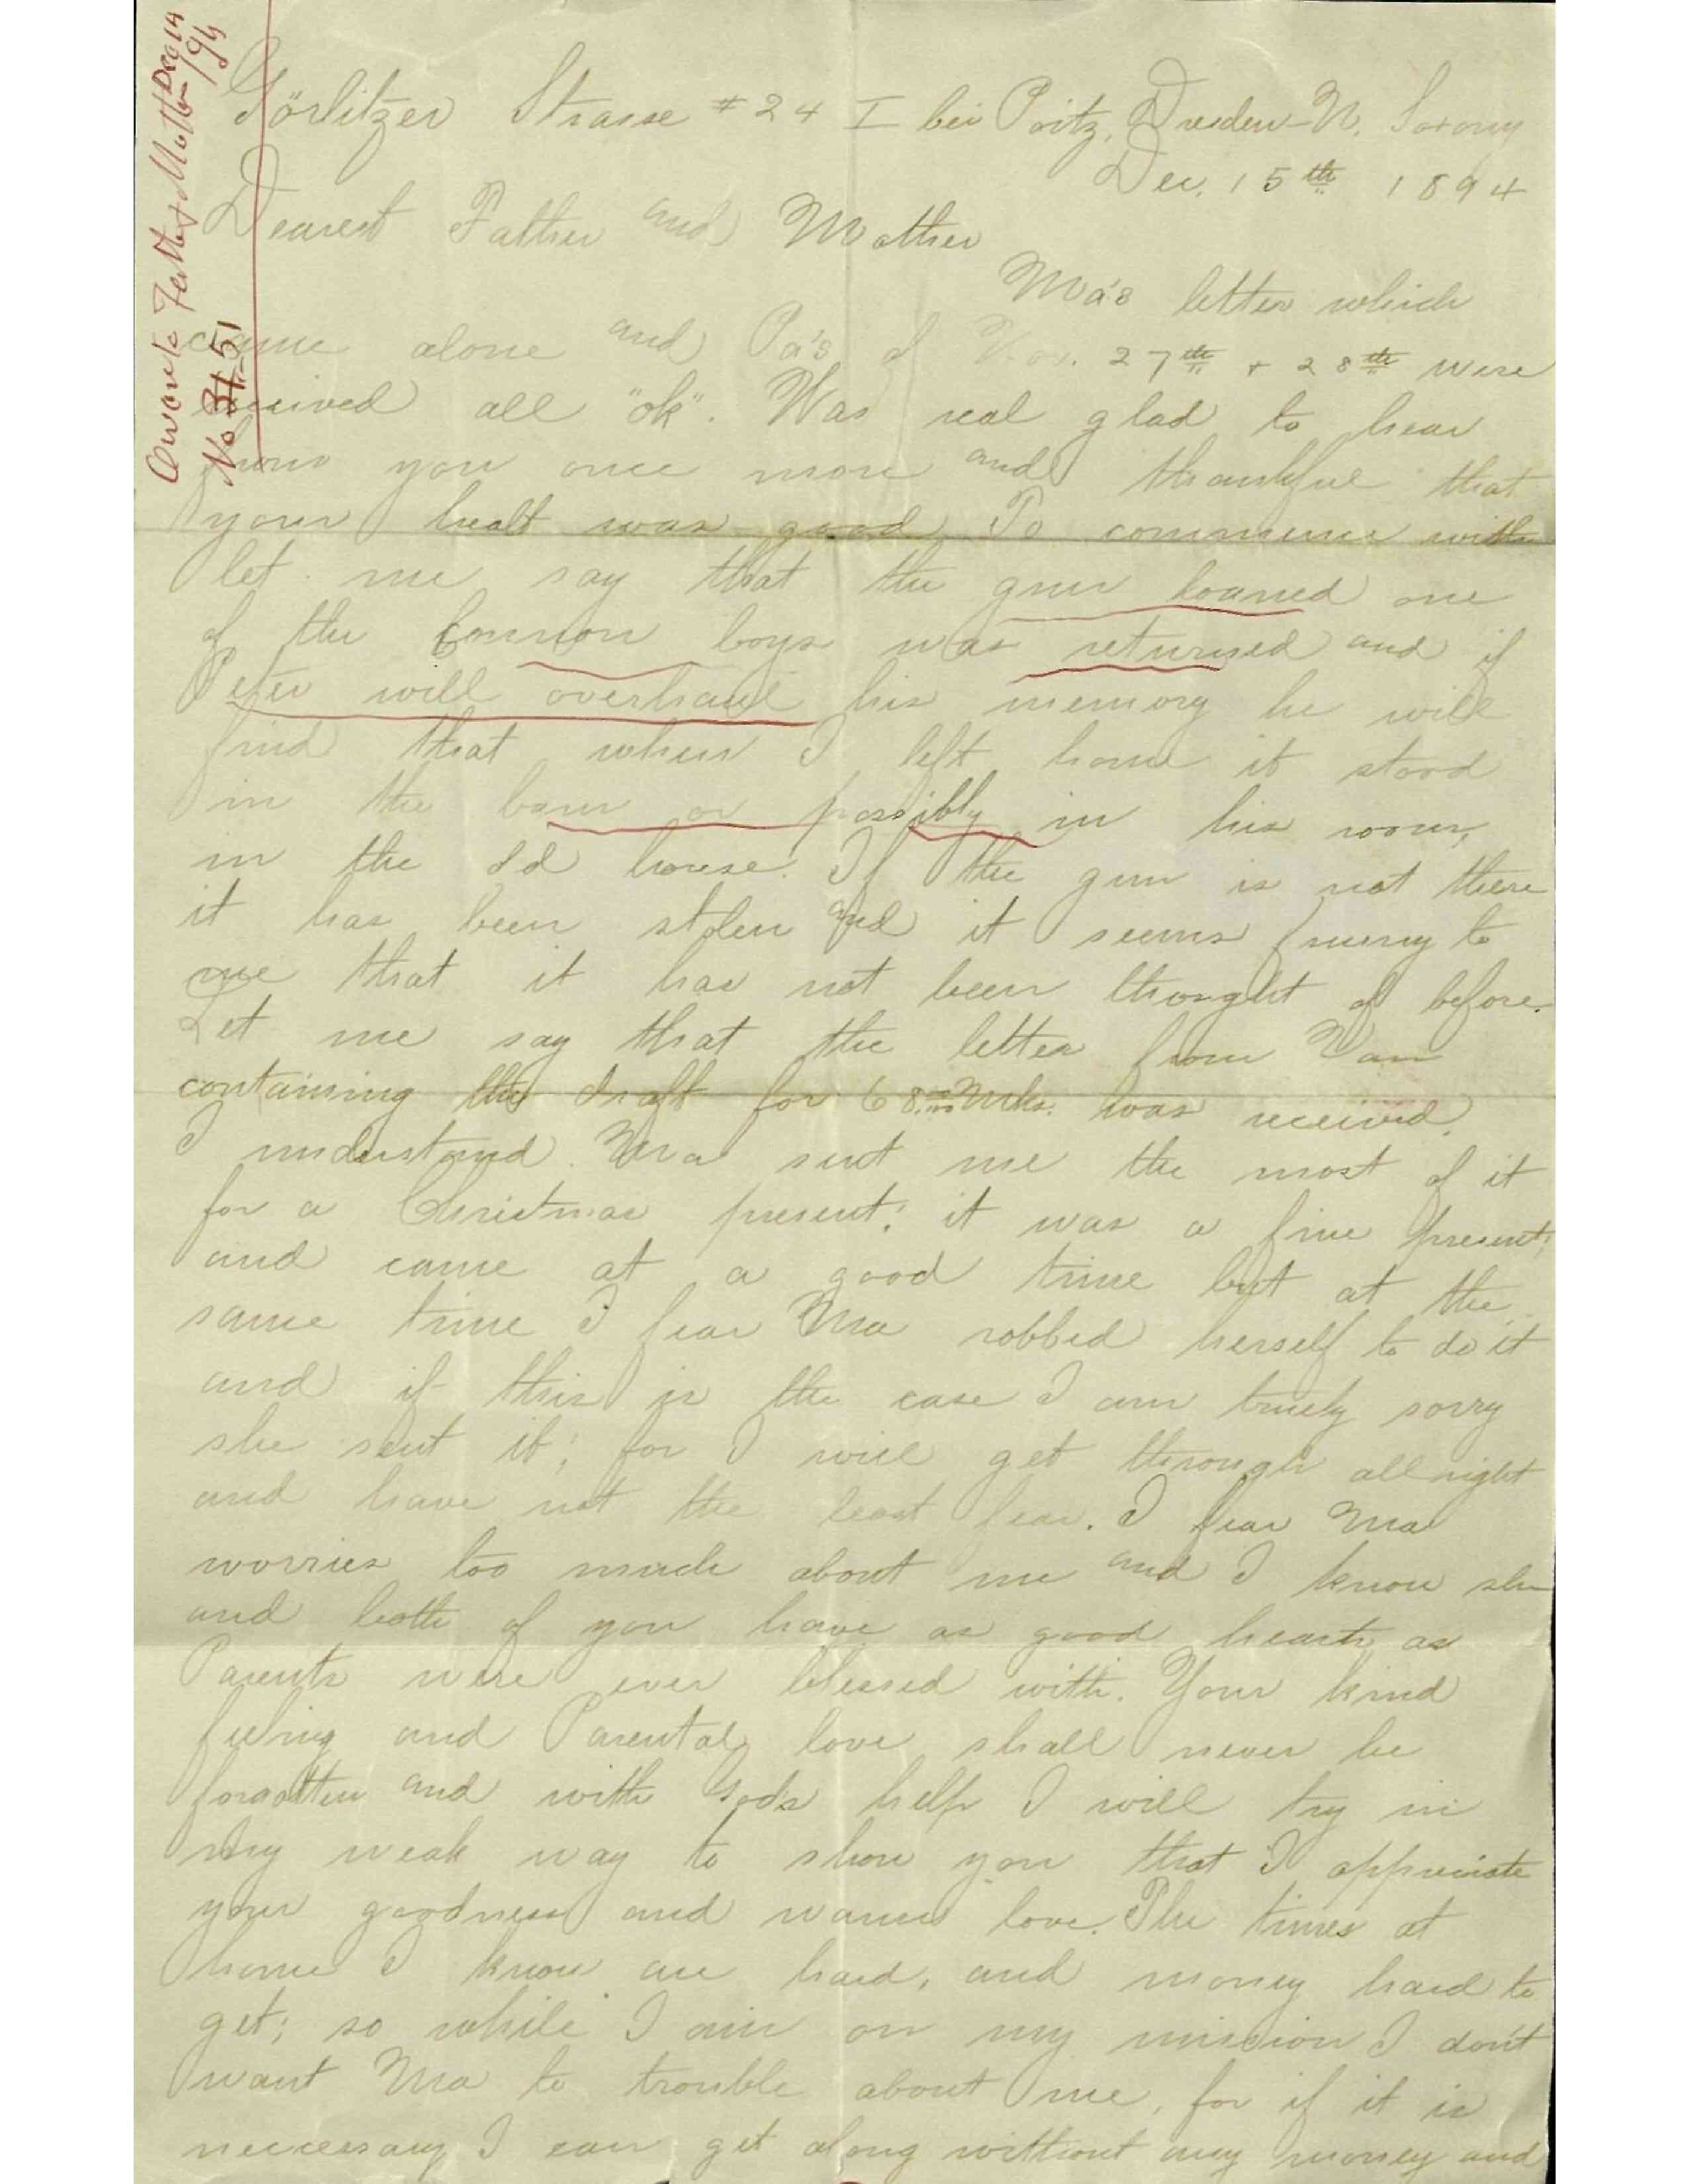 Görlitzer Strasse #24 I bei Poitz, Dresden-N. Saxony
Dec. 15th 1894
Dearest Father and Mother
Ma's letter which
came alone and Pa's of Nov. 27th + 28th were
received all "ok". Was real glad to hear
from you once more and thankful that
your healt was good. To commence with
let me say that the gun loaned one
of the Connon boys was returned and if
Peter will overhaul his memory he will
find that when I left home it stood
in the barn or possibly in his room,
in the old house. If the gun is not there
it has been stolen and it seems funny to
me that it has not been thought of before.
Let me say that the letter from Van
containing the draft for 68 Mks. was received.
I understand Ma sent me the most of it
for a Christmas present; it was a fine present;
and came at a good time but at the
same time I fear Ma robbed herself to do it
and if this is the case I am truely sorry
she sent it; for I will get through all right
and have not the least fear. I fear Ma
worries too much about me and I know she
and both of you have as good hearts as
Parents were ever blessed with. Your kind
feeling and Parental love shall never be
forgotten and with God's help I will try in
my weak way to show you that I appreciate
your goodness and warm love. The times at
home I know are hard, and money hard to
get; so while I am on my mission I don't
want Ma to trouble about me, for if it is
neccessary I can get along without any money and
Father & Mother Dec 14
/94
No 51